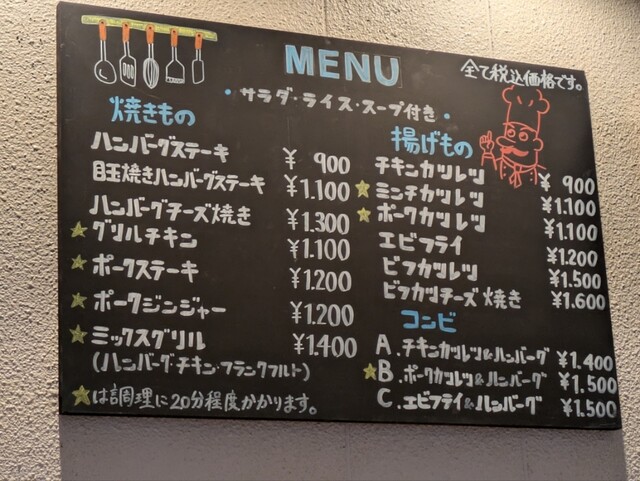 MENU
全て税込価格です。
・サラダ・ライス・スープ付き・
焼きもの
ハンバーグステーキ ¥900
目玉焼きハンバーグステーキ ¥1.100
ハンバーグチーズ焼き ¥1.300
★グリルチキン ¥1.100
★ポークステーキ ¥1.200
★ポークジンジャー ¥1.200
★ミックスグリル ¥1.400
(ハンバーグ・チキン・フランクフルト)
★は調理に20分程度かかります。
揚げもの
チキンカツレツ ¥900
★ミンチカツレツ ¥1.100
★ポークカツレツ ¥1.100
エビフライ ¥1.200
ビフカツレツ ¥1.500
ビフカツチーズ焼き ¥1.600
コンビ
A.チキンカツレツ&ハンバーグ ¥1.400
★B.ポークカツレツ&ハンバーグ ¥1.500
C.エビフライ&ハンバーグ ¥1.500